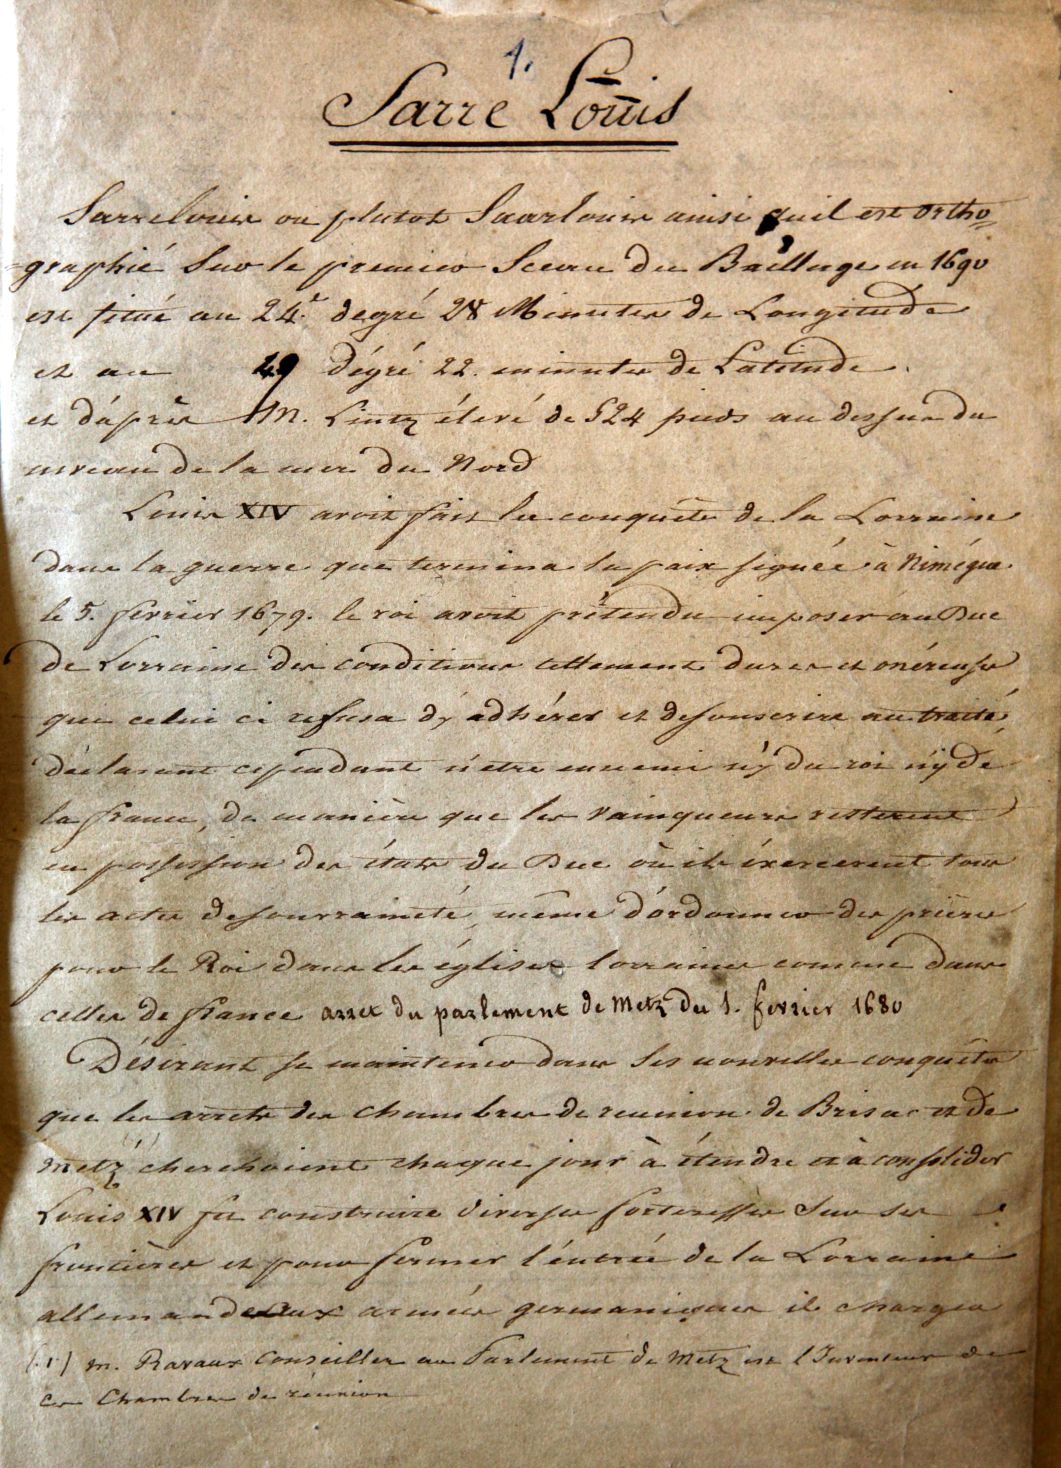 1.
Sarre Louis
Sarrelouis ou plutot Saarlouis ainsi qu'il est ortho=
=graphié Sur le premier Sceau du Baillage en 1690
est situé au 24.e degré 28 Minutes de Longitude
et au 49 dégré 22. minutes de Latitude.
et d'après M. Lintz élevé de 524 pieds au dessus du
niveau de la mer du Nord
Louis XIV avoit fait la conquête de la Lorraine
dans la guerre que termina la paix signée à Nimégue
le 5. fevrier 1679. le roi avoit prétendu imposer au Duc
de Lorraine des conditions tellement dures et onéreuses
que celui ci refusa d'y adhérer et de souscrire au traité,
déclarant cependant n'etre ennemi n'y du roi n'y de
la france, de manière que les vainqueurs resterent
en possession des états du Duc où ils éxercerent tous
les actes de souvraineté, même d'ordonner des prières
pour le Roi dans les églises lorraines comme dans
celles de france arret du parlement de Metz du 1. fevrier 1680
Désirant se maintenir dans ses nouvelles conquêtes
que les arrets des chambres de reunion de Brisac et de
Metz cherchoient chaque jour à étendre et à consolider
Louis XIV fit construire diverses forteresses Sur ses
frontières et pour fermer l'éntrée de la Lorraine
allemande aux armées germaniques il chargea
(.1.) m. Ravaux Conseiller au Parlement de Metz est l'Inventeur de
ces Chambres de réunion